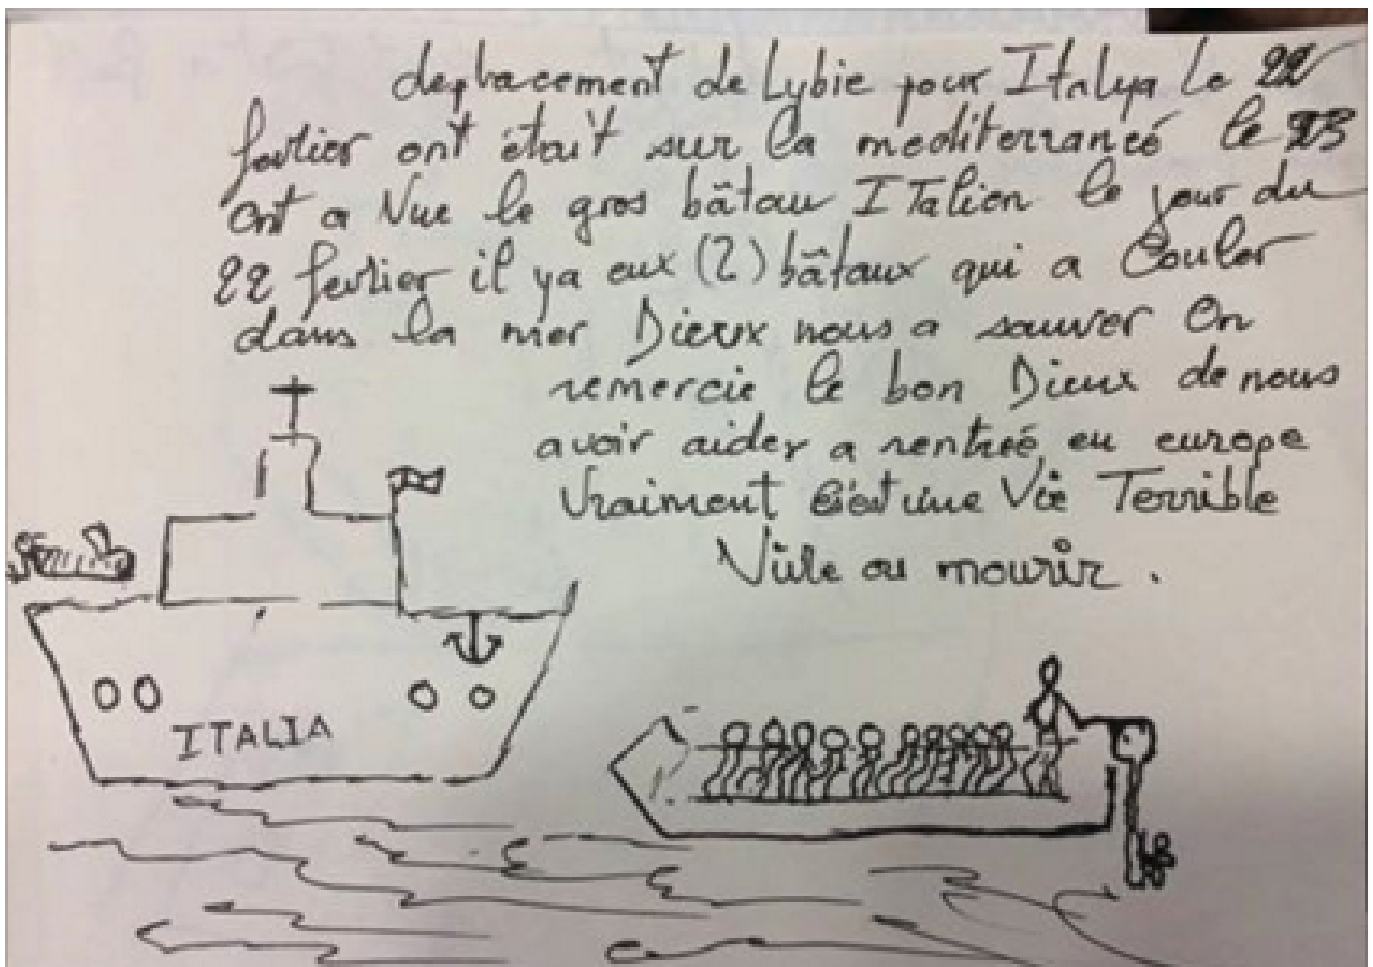 deplacement de Lybie pour Italya le 22
fevrier ont était sur la mediterraneé le 23
ont a Vue le gros bâtau ITalien le jour du
22 fevrier il ya eux (2) bâtaux qui a Couler
dans la mer Dieux nous a sauver On
remercie le bon Dieux de nous
avoir aider a rentreé en europe
Vraiment c'est une Vie Terrible
Vivle ou mourir .
ITALIA